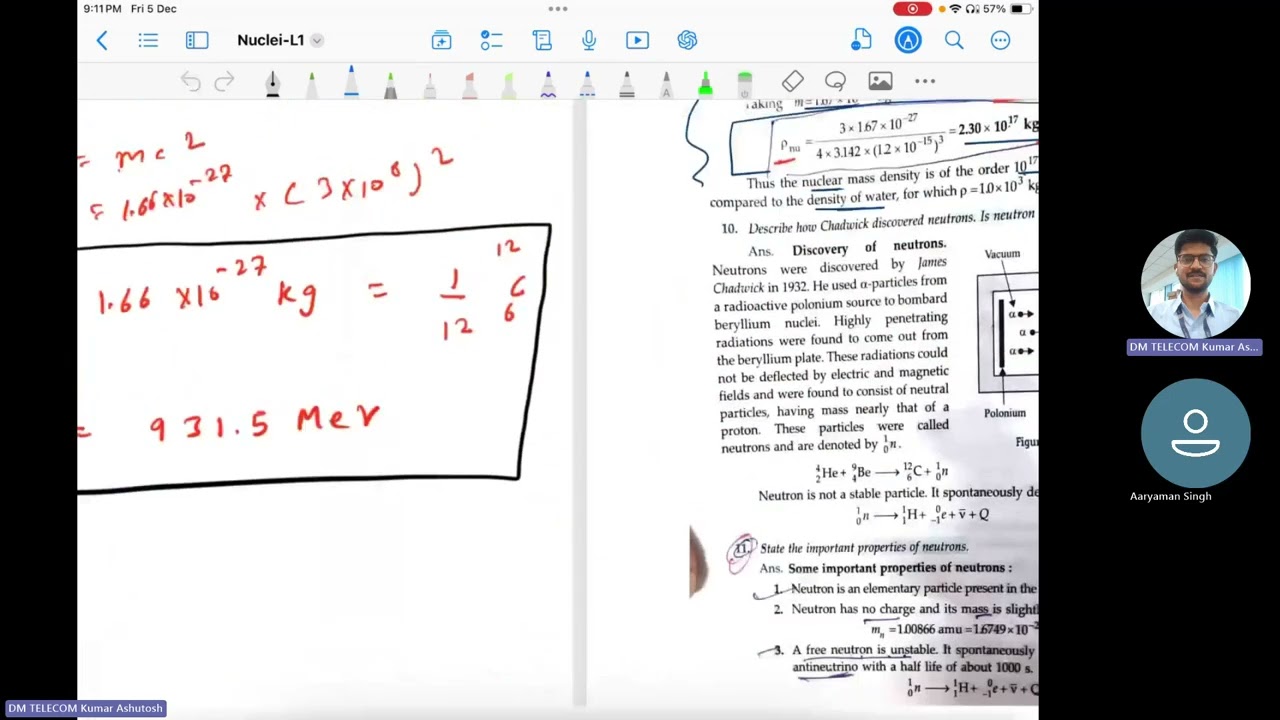 9:11 PM Fri 5 Dec
57%
Nuclei-L1
= mc 2
= 1.66×10 -27 × ( 3×10 8 ) 2
1.66 ×10 -27 kg = 1/12 12 C 6
= 931.5 MeV
Taking m = 1.67 × 10
ρnu = 3 × 1.67 × 10⁻²⁷ / 4 × 3.142 × (1.2 × 10⁻¹⁵)³ = 2.30 × 10¹⁷ kg
Thus the nuclear mass density is of the order 10¹⁷
compared to the density of water, for which ρ = 1.0 × 10³ kg
10. Describe how Chadwick discovered neutrons. Is neutron
Ans. Discovery of neutrons.
Neutrons were discovered by James
Chadwick in 1932. He used α-particles from
a radioactive polonium source to bombard
beryllium nuclei. Highly penetrating
radiations were found to come out from
the beryllium plate. These radiations could
not be deflected by electric and magnetic
fields and were found to consist of neutral
particles, having mass nearly that of a
proton. These particles were called
neutrons and are denoted by ¹₀n.
Vacuum
α
α
α
Polonium
Figu
⁴₂He + ⁹₄Be ⟶ ¹²₆C + ¹₀n
Neutron is not a stable particle. It spontaneously de
¹₀n ⟶ ¹₁H + ⁰₋₁e + ν̄ + Q
11. State the important properties of neutrons.
Ans. Some important properties of neutrons :
1. Neutron is an elementary particle present in the
2. Neutron has no charge and its mass is slight
mₙ = 1.00866 amu = 1.6749 × 10⁻²
3. A free neutron is unstable. It spontaneously
antineutrino with a half life of about 1000 s.
¹₀n ⟶ ¹₁H + ⁰₋₁e + ν̄ + Q
DM TELECOM Kumar As...
Aaryaman Singh
DM TELECOM Kumar Ashutosh